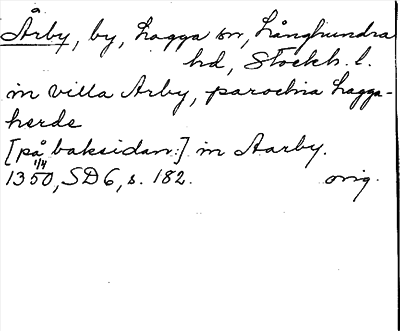 Årby, by, Lagga sn, Långhundra
hd, Stockh. l.
in villa Arby, parochia Lagga-
herde
[på baksidan:] in Aarby.
1350 1/4, SD 6, s. 182. orig.